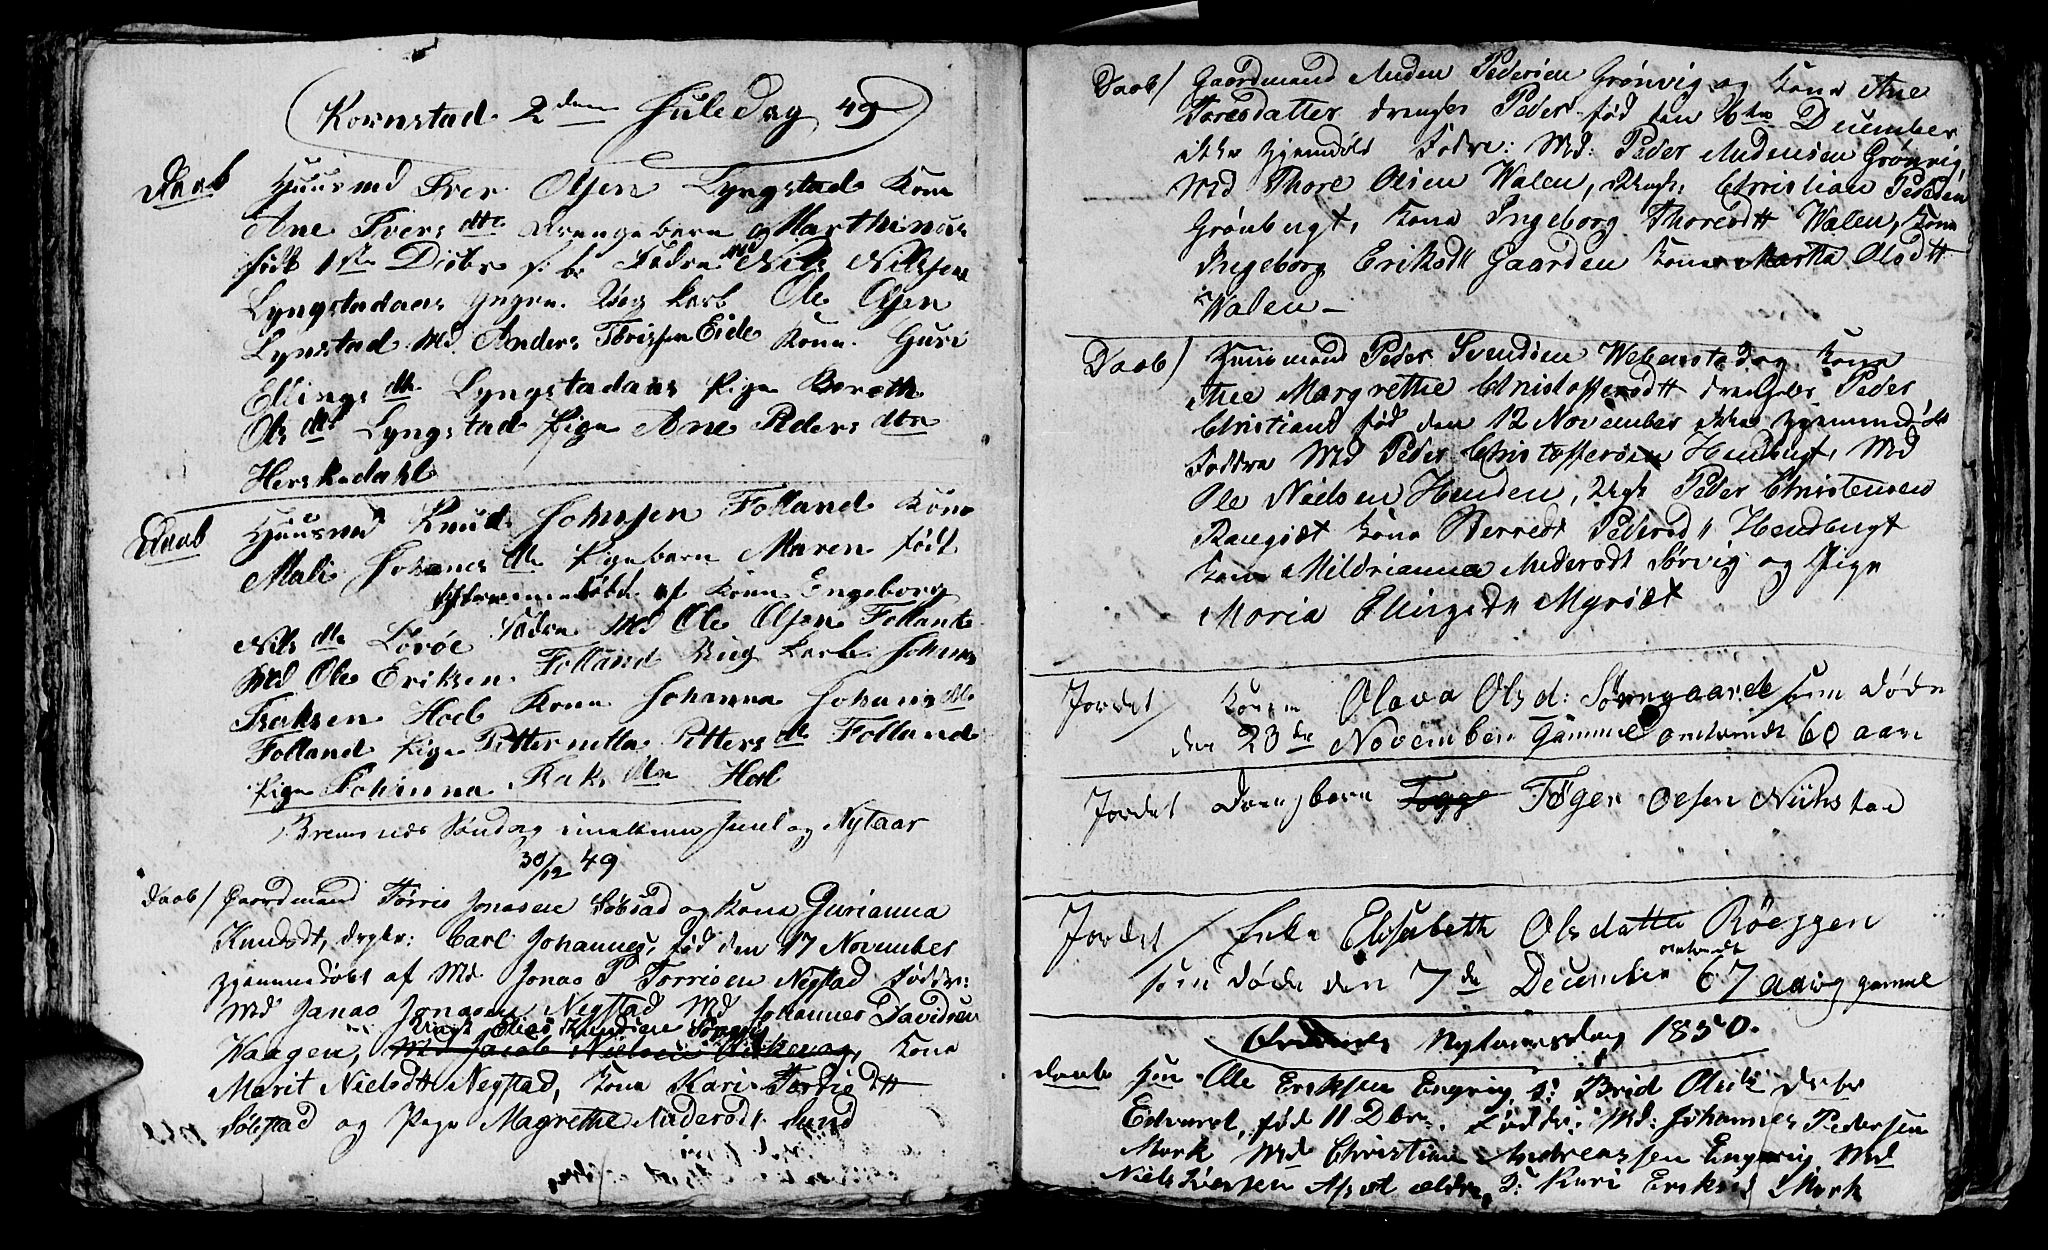 Kornstad 2den Juledag 49
Daab Huusmd Iver Olsen Lyngstad Kone
Ane Ivers dtr Drengebarn Marthinus
født 1ste Debr Fadre Md Nils Nilssen
Lyngstadaas Ungkarl Ole Olsen
Lynstad Md Anders Tørissen Eide Kone Guri
Ellings dtr Lyngstadaas Pige Bereth
Ols dtr Lyngstad Pige Ane Peders dtr
Herskedahl
Daab Huusmd Knud Johnsen Folland Kone
Mali Johanes dtr Pigebarn Maren født
Hjemmedøbt af Kone Engeborg
Nils dtr Lovøe Fadre Md Ole Olsen Folland
Md Ole Eriksen Folland Ung Karl Johnes
Isaksen Hoel Kone Johanna Johans dtr
Folland Pige Petternella Petters dtr Folland
Pige Johanna Isaks dtr Hoel
Bremsnes Søndag imellem Juul og Nytaar
30/12 49
Daab/ Gaardmand Tørris Jonasen Søbstad og Kone Gurianna
Knudsdt, drgbr: Carl Johannes, fød den 17 November
hjemmedøbt af Md Jonas P Torrisen Negstad Faddre:
Md Jonas Jonasen Negstad Md Johannes Davidsen
Ungk Elias Knudsen
Waagen, Md Jacob Nielsen Kone
Marit Nielsdtt Negstad, Kone Kari Torrisdtt
Søbstad og Pige Magrethe Andersdt Sund
Daab/ Gaardmand Anden Pedersen Grønvig og Kone Ane
Toresdatter drengb: Peder fød den 6te December
ikke hjemdøbt Fadre: Md: Peder Andensen Grønvig,
Md Thore Olsen Walen, Ungk: Christian Pedersen
Grønbugt, Kone Ingeborg Thoresdtt Walen, Kone
Ingeborg Eriksdtt Gaarden Kone Martha Olsdtt
Walen
Daab/ Huusmand Peder Svendsen Webenstad og Kone
Ane Margrethe Christoffersdtt drengb: Peder
Christian fød den 12 November ikke hjemmedøbt
Faddre Md Peder Christoffersen Hendbugt, Md
Ole Nielsen Henden, Ungk Peder Christensen
Ramsiæt Kone Berret Pedersdtt Hendbugt
Kone Mildrianna Andersdt Sørvig og Pige
Maria Ellingsdtt Myrsæt
Jordet/ Konen Olava Olsd: Sørgaard som døde
den 23de November gammel omtrendt 60 aar
Jordet Drengbarn Togge Tøger Olsen Nükstad
Jordet/ Enke Elisabeth Olsdatter Røeggen
omtrendt
som døde den 7de December 67 aarig gammel
Nytaarsdag 1850.
Daab Hm Ole Eriksen Engvig, Brid Olsdt Drbr
Edvard, fød 11 Dbr. Faddr: Md: Johannes Pedersen
Mork Md Christian Andreassen Engvig Md
Niels Iversen ældre, P: Kari Eriksd Mork